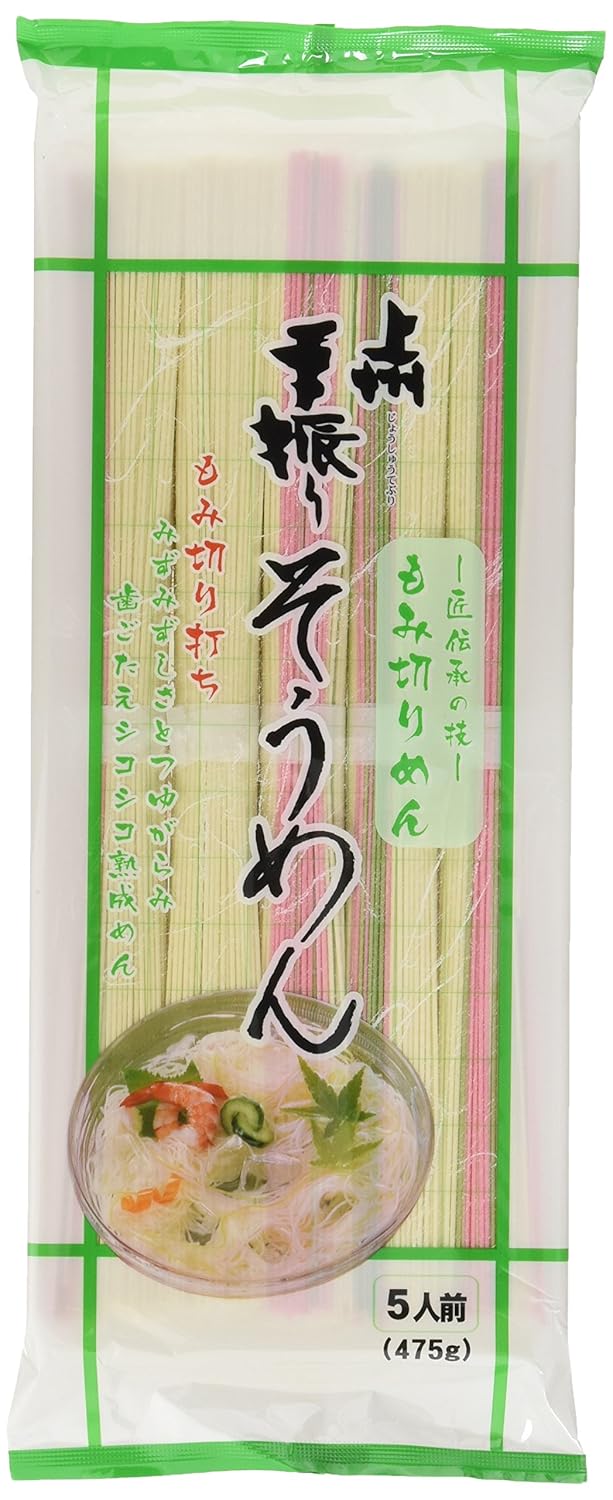 上州
じょうしゅうてぶり
手振り そうめん
－匠伝承の技－
もみ切りめん
もみ切り打ち
みずみずしさとつゆがらみ
歯ごたえシコシコ熟成めん
5人前
(475g)